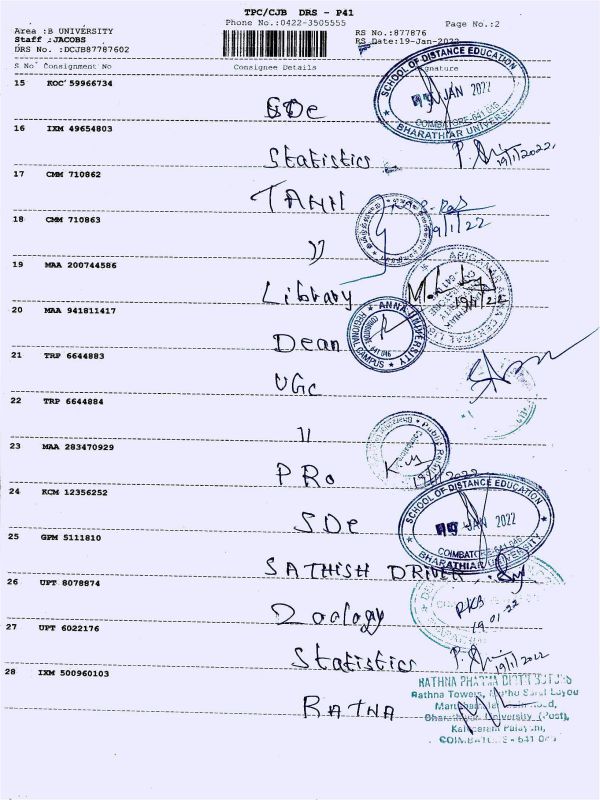 TPC/CJB DRS - P41
Phone No.:0422-3505555
Page No.:2
Area :B UNIVERSITY
Staff :JACOBS
DRS No. :DCJB87787602
RS No.:877876
RS Date:19-Jan-2022
S No Consignment No Consignee Details Signature
15 KOC 59966734
SDe
SCHOOL OF DISTANCE EDUCATION
19 JAN 2022
COIMBATORE-641 046
BHARATHIAR UNIVERSITY
16 IXM 49654803
Statistics
19/1/2022
17 CMM 710862
TAMIL
18 CMM 710863
")
19/1/22
19 MAA 200744586
Library
19/1/22
20 MAA 941811417
Dean
ANNA UNIVERSITY
REGIONAL CAMPUS
21 TRP 6644883
UGC
22 TRP 6644884
11
23 MAA 283470929
PRO
19/1/2022
24 KCM 12356252
SDe
SCHOOL OF DISTANCE EDUCATION
19 JAN 2022
COIMBATORE-641 046
BHARATHIAR UNIVERSITY
25 GPM 5111810
SATHISH DRIVER
26 UPT 8078874
Zoology
RKB
19.01.22
27 UPT 6022176
Statistics
19/1/2022
28 IXM 500960103
RATNA
RATHNA PHARMA DISTRIBUTORS
Rathna Towers,
Bharathiar University (Post),
COIMBATORE - 641 046